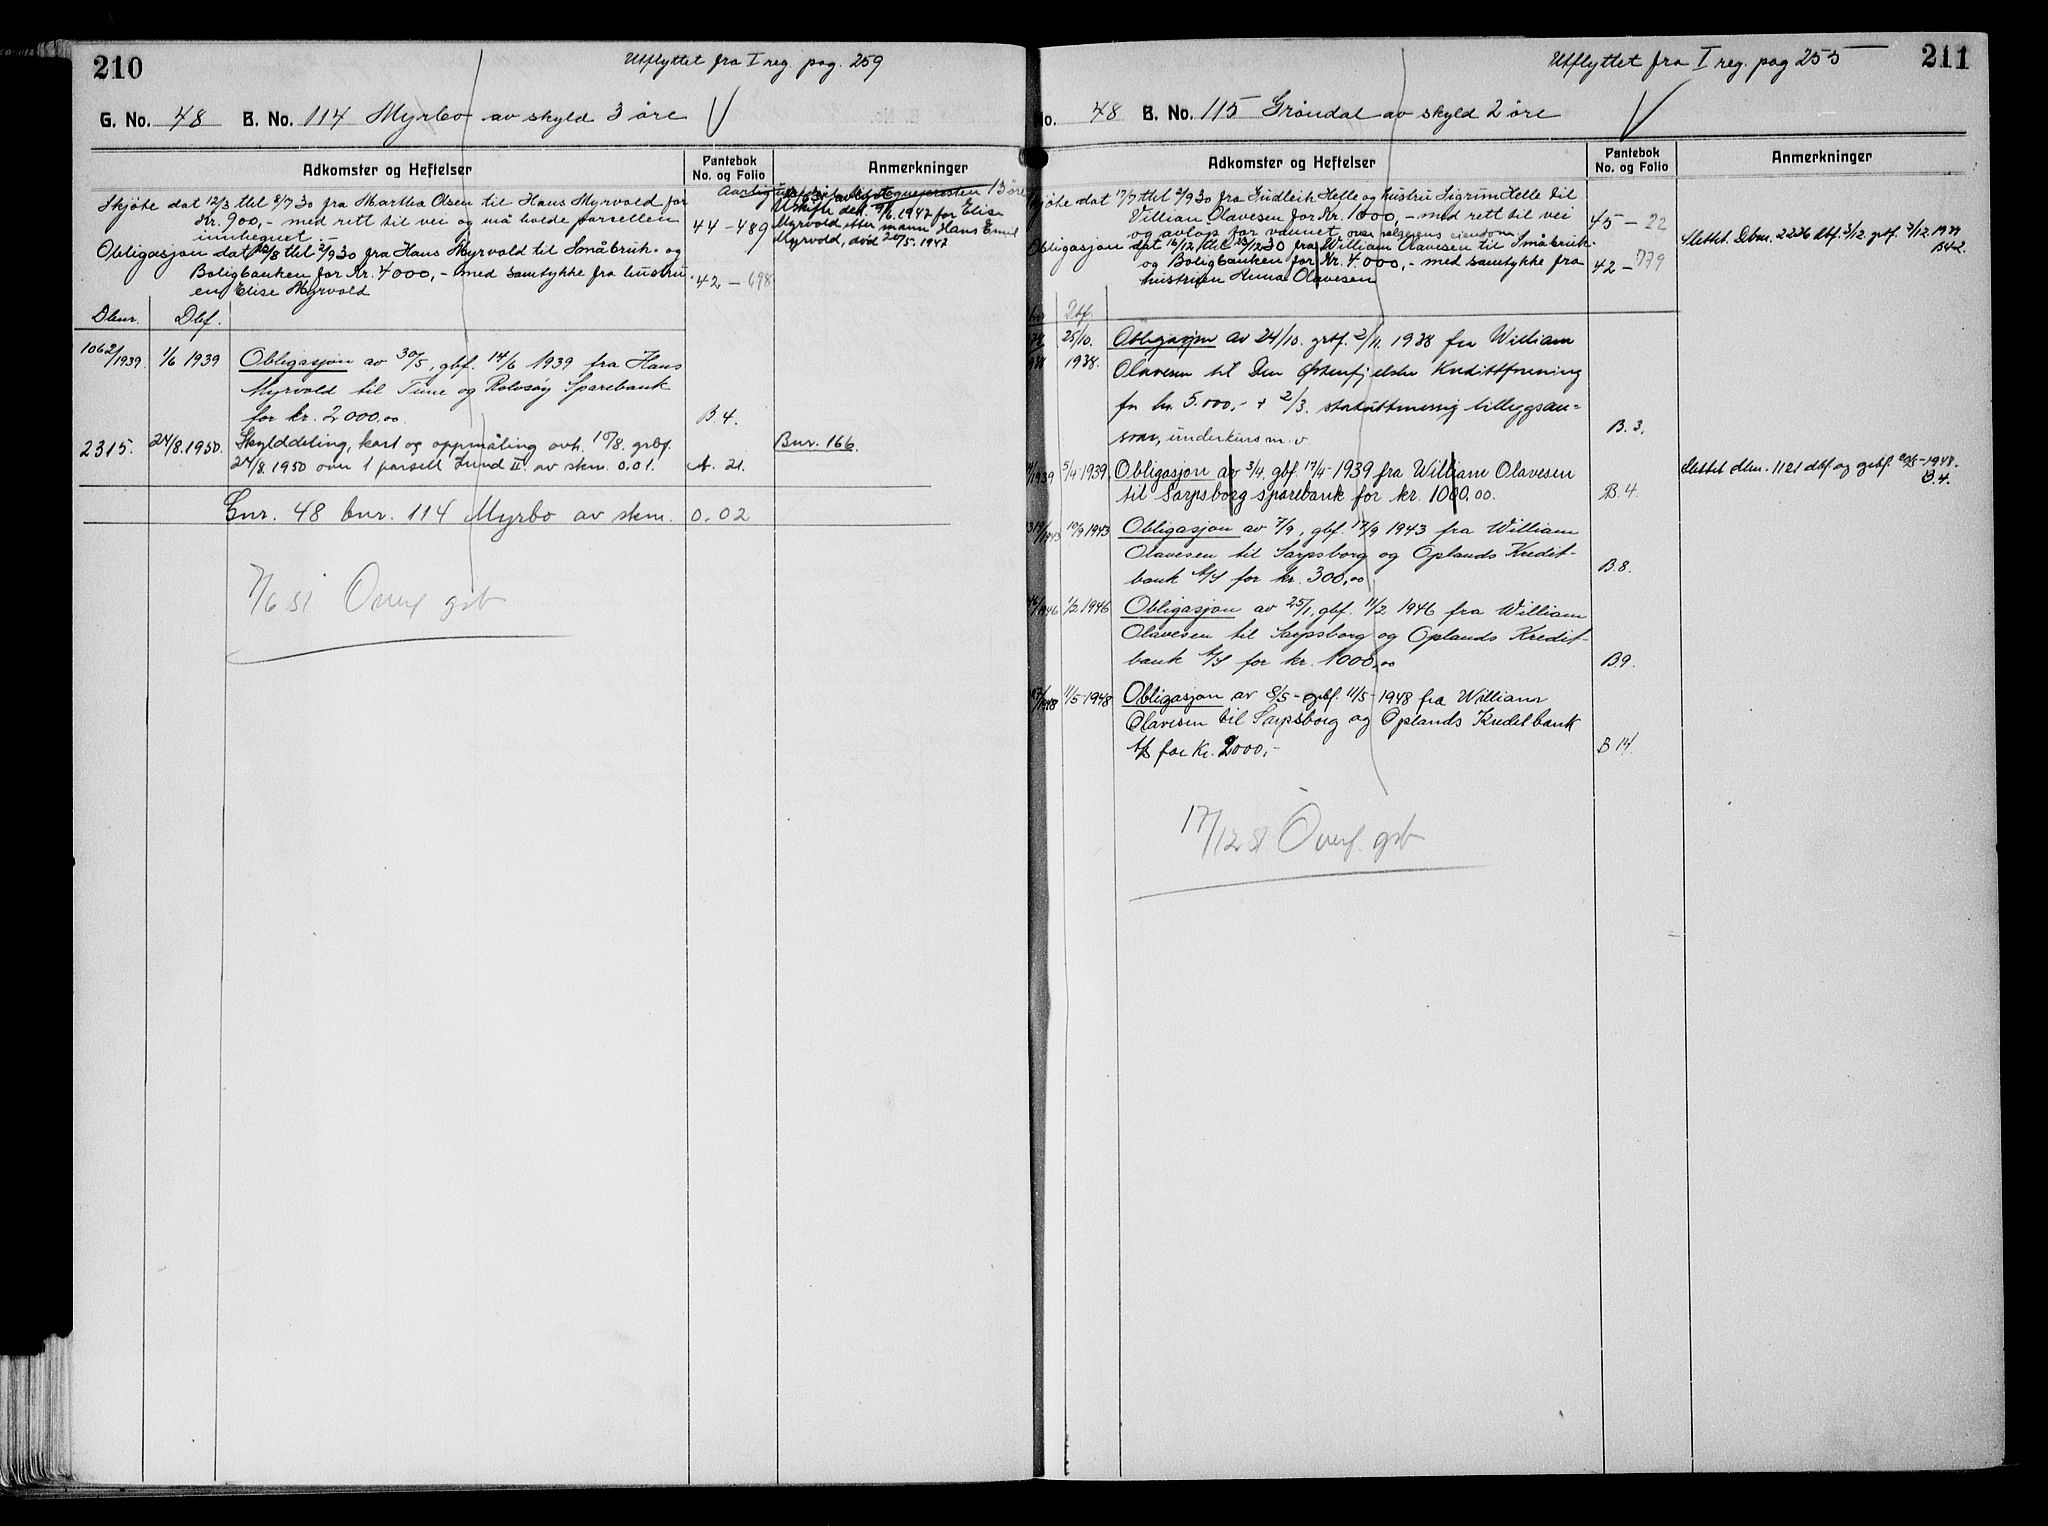 210
Utflyttet fra I reg. pag. 259
G. No. 48 B. No. 114 Myrbo av skyld 3 øre
Adkomster og Heftelser
Pantebok
No. og Folio
Anmerkninger
Skjøte dat 12/3 thl 8/7 30 fra Martha Olsen til Hans Myrvold for
Kr. 900,- med rett til vei og må holde parsellen
innhegnet. -
44 - 489
Utskifte dat. 9/6.1947 for Elise
Myrvold etter mann Hans Emil
Myrvold, død 20/5.1947
Obligasjon dat 20/8 thl 2/9 30 fra Hans Myrvold til Småbruk- og
Boligbanken for Kr. 4000,- med samtykke fra hustru
en Elise Myrvold
42 - 698
Dbnr. Dbf.
1062/1939 1/6 1939 Obligasjon av 30/5, gbf. 14/6 1939 fra Hans
Myrvold til Tune og Rolvsøy Sparebank
for kr. 2000,00 B 4.
2315. 24/8.1950. Skylddeling, kart og oppmåling avh. 10/8. grbf.
24/8.1950 over 1 parsell Lund II. av skm. 0.01. A. 21. Bnr. 166.
Gnr. 48 bnr. 114 Myrbo av skm. 0.02
7/6 51 Overf grb
211
Utflyttet fra I reg. pag 255
No. 48 B. No. 115 Grøndal av skyld 2 øre
Adkomster og Heftelser
Pantebok
No. og Folio
Anmerkninger
jøte dat 17/7 thl 2/9 30 fra Gudleik Helle og hustru Sigrun Helle til
Villian Olavesen for Kr. 1000,- med rett til vei
og avløp for vannet over selgerens eiendom
45 - 22
Obligasjon dat 16/12 thl 23/12 30 fra William Olavesen til Småbruk-
og Boligbanken for Kr. 4.000,- med samtykke fra
hustruen Anna Olavesen
42 - 779
Slettet. Dbnr. 2276 dbf. 3/12. grbf. 7/12.1939
B42.
Dbf.
25/10. 1938. Obligasjon av 24/10. grbf. 2/11. 1938 fra William
Olavesen til Den Østenfjelske Kredittforening
for kr. 5.000,- + 2/3. statuttmessig tilleggsan=
svar, underkurs m. v B. 3.
/1939 5/4-1939 Obligasjon av 3/4. gbf. 17/4-1939 fra William Olavesen
til Sarpsborg sparebank for kr. 1000,00. B. 4.
Slettet dbnr. 1121 dbf og grbf. 20/5-1948.
B.4.
/1943 10/9 1943 Obligasjon av 7/9, gbf. 17/9 1943 fra William
Olavesen til Sarpsborg og Oplands Kredit-
bank A/S for kr. 300,00 B.8.
/1946 1/2 1946 Obligasjon av 25/1, gbf. 11/2 1946 fra William
Olavesen til Sarpsborg og Oplands Kredit-
bank A/S for kr. 1000,00 B9.
/1948 11/5-1948 Obligasjon av 8/5- grbf. 11/5-1948 fra William
Olavesen til Sarpsborg og Oplands Kreditbank
A/S for Kr. 2000,- B 14
17/12 51 Overf. grb